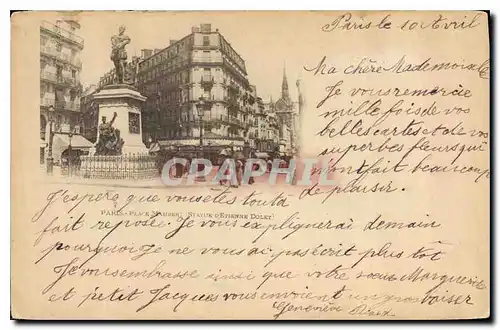 Paris le 10 Avril
Ma chère Mademoiselle
Je vous remercie
mille fois de vos
belles cartes et de vos
superbes fleurs qui
m'ont fait beaucoup
de plaisir.
J'espère que vous êtes tout à
PARIS - PLACE MAUBERT (STATUE D'ETIENNE DOLET)
fait reposée. Je vous expliquerai demain
pourquoi je ne vous ai pas écrit plus tot
Je vous embrasse ainsi que votre sœur Marguerite
et petit Jacques vous envoient un gros baiser
Geneviève
CPA